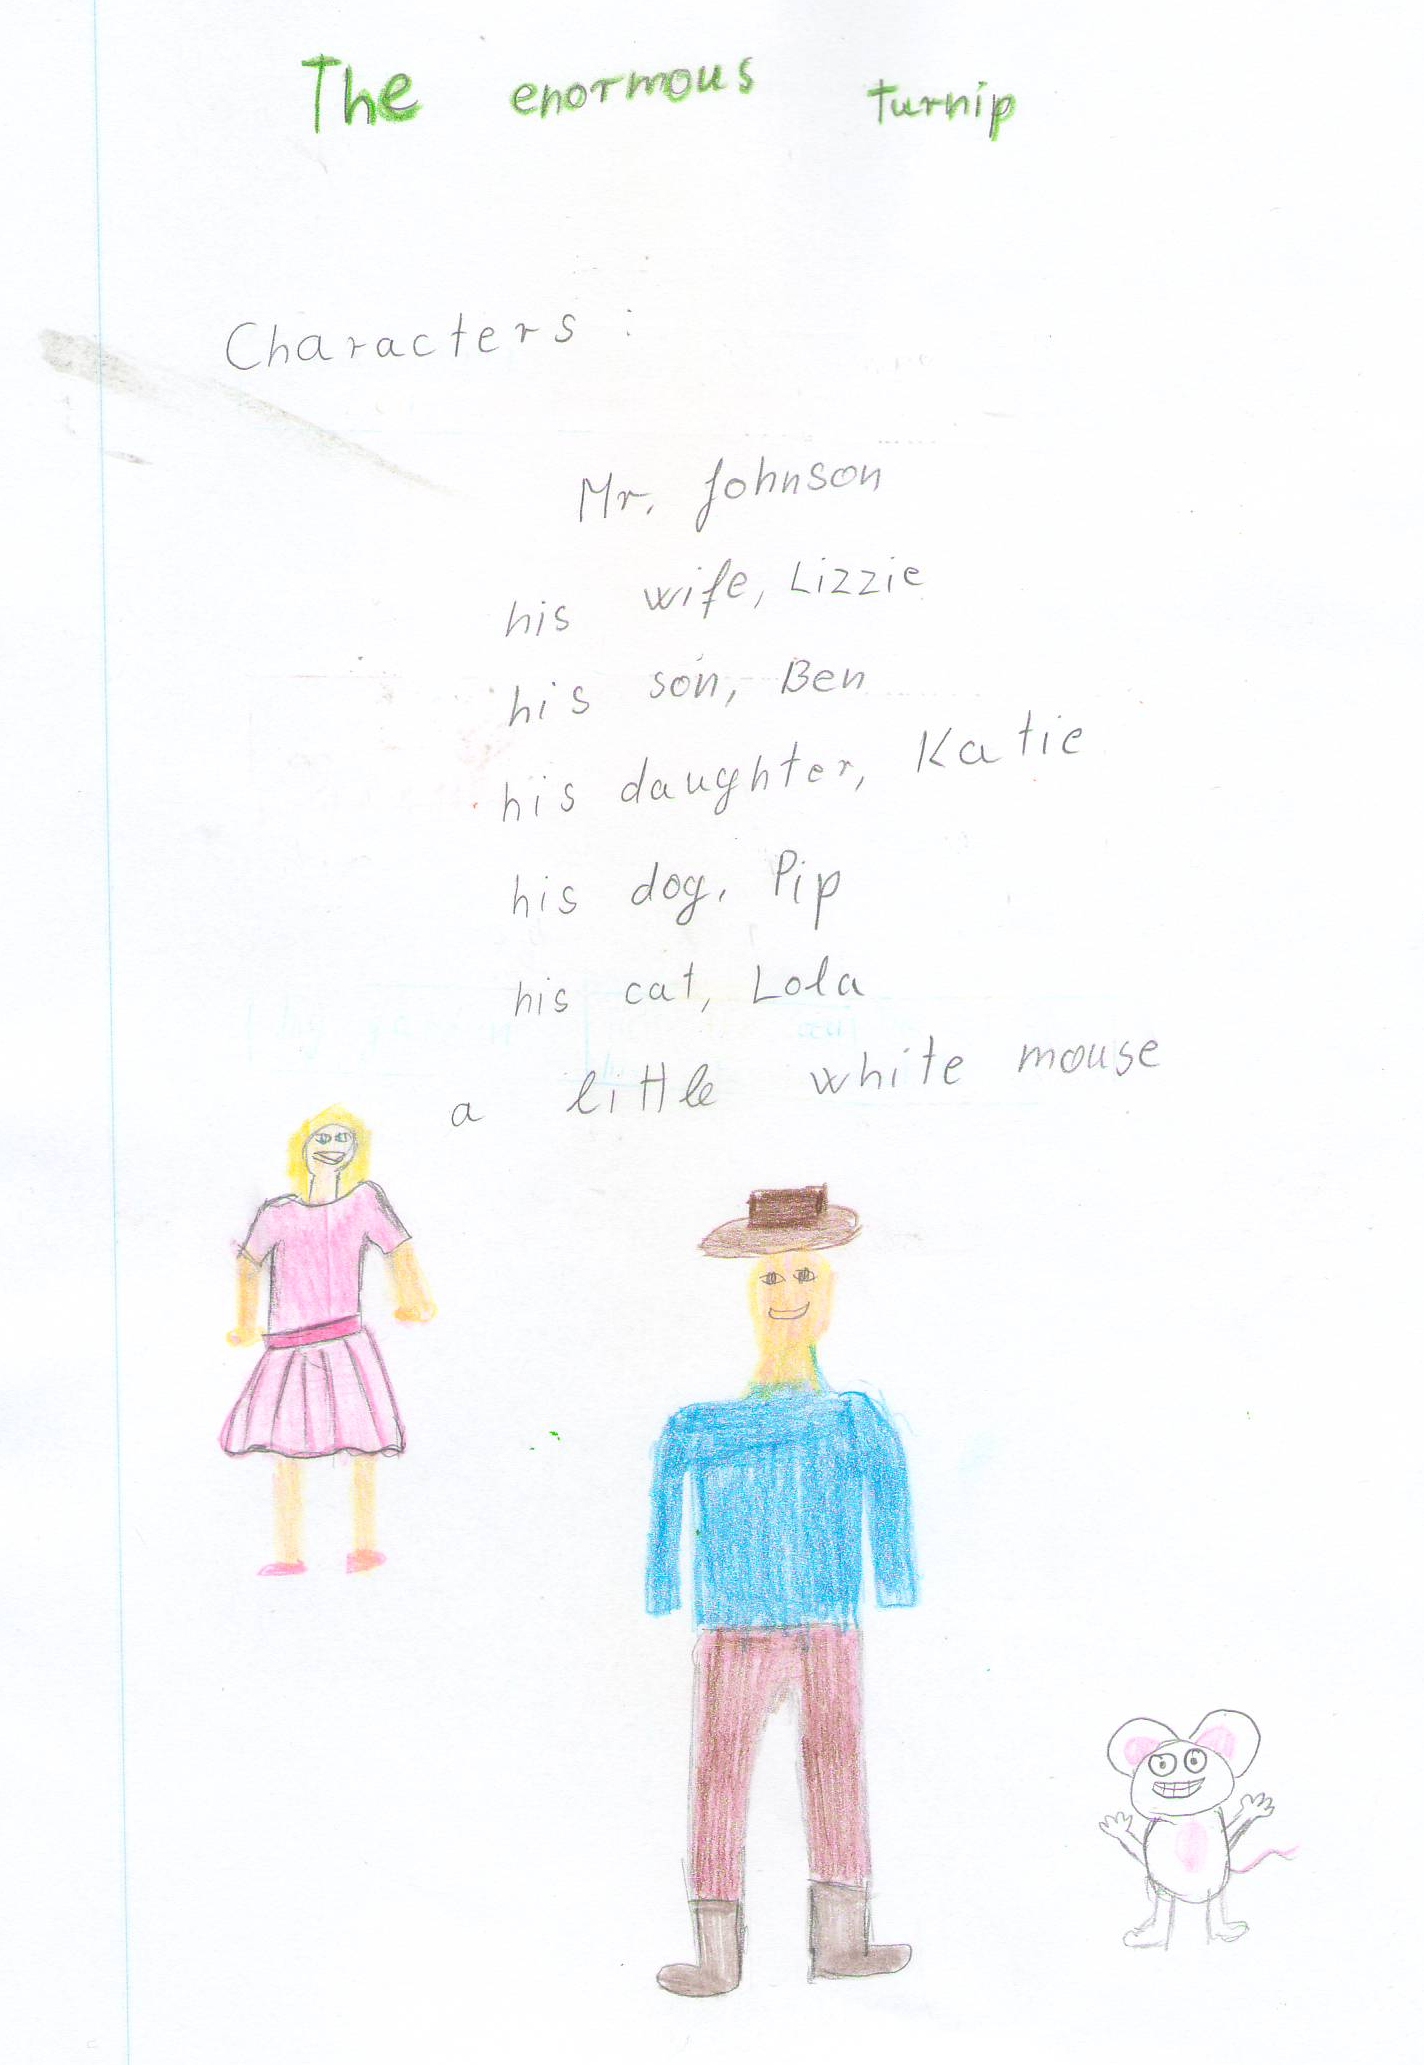 The enormous turnip
Characters:
Mr. Johnson
his wife, Lizzie
his son, Ben
his daughter, Katie
his dog, Pip
his cat, Lola
a little white mouse